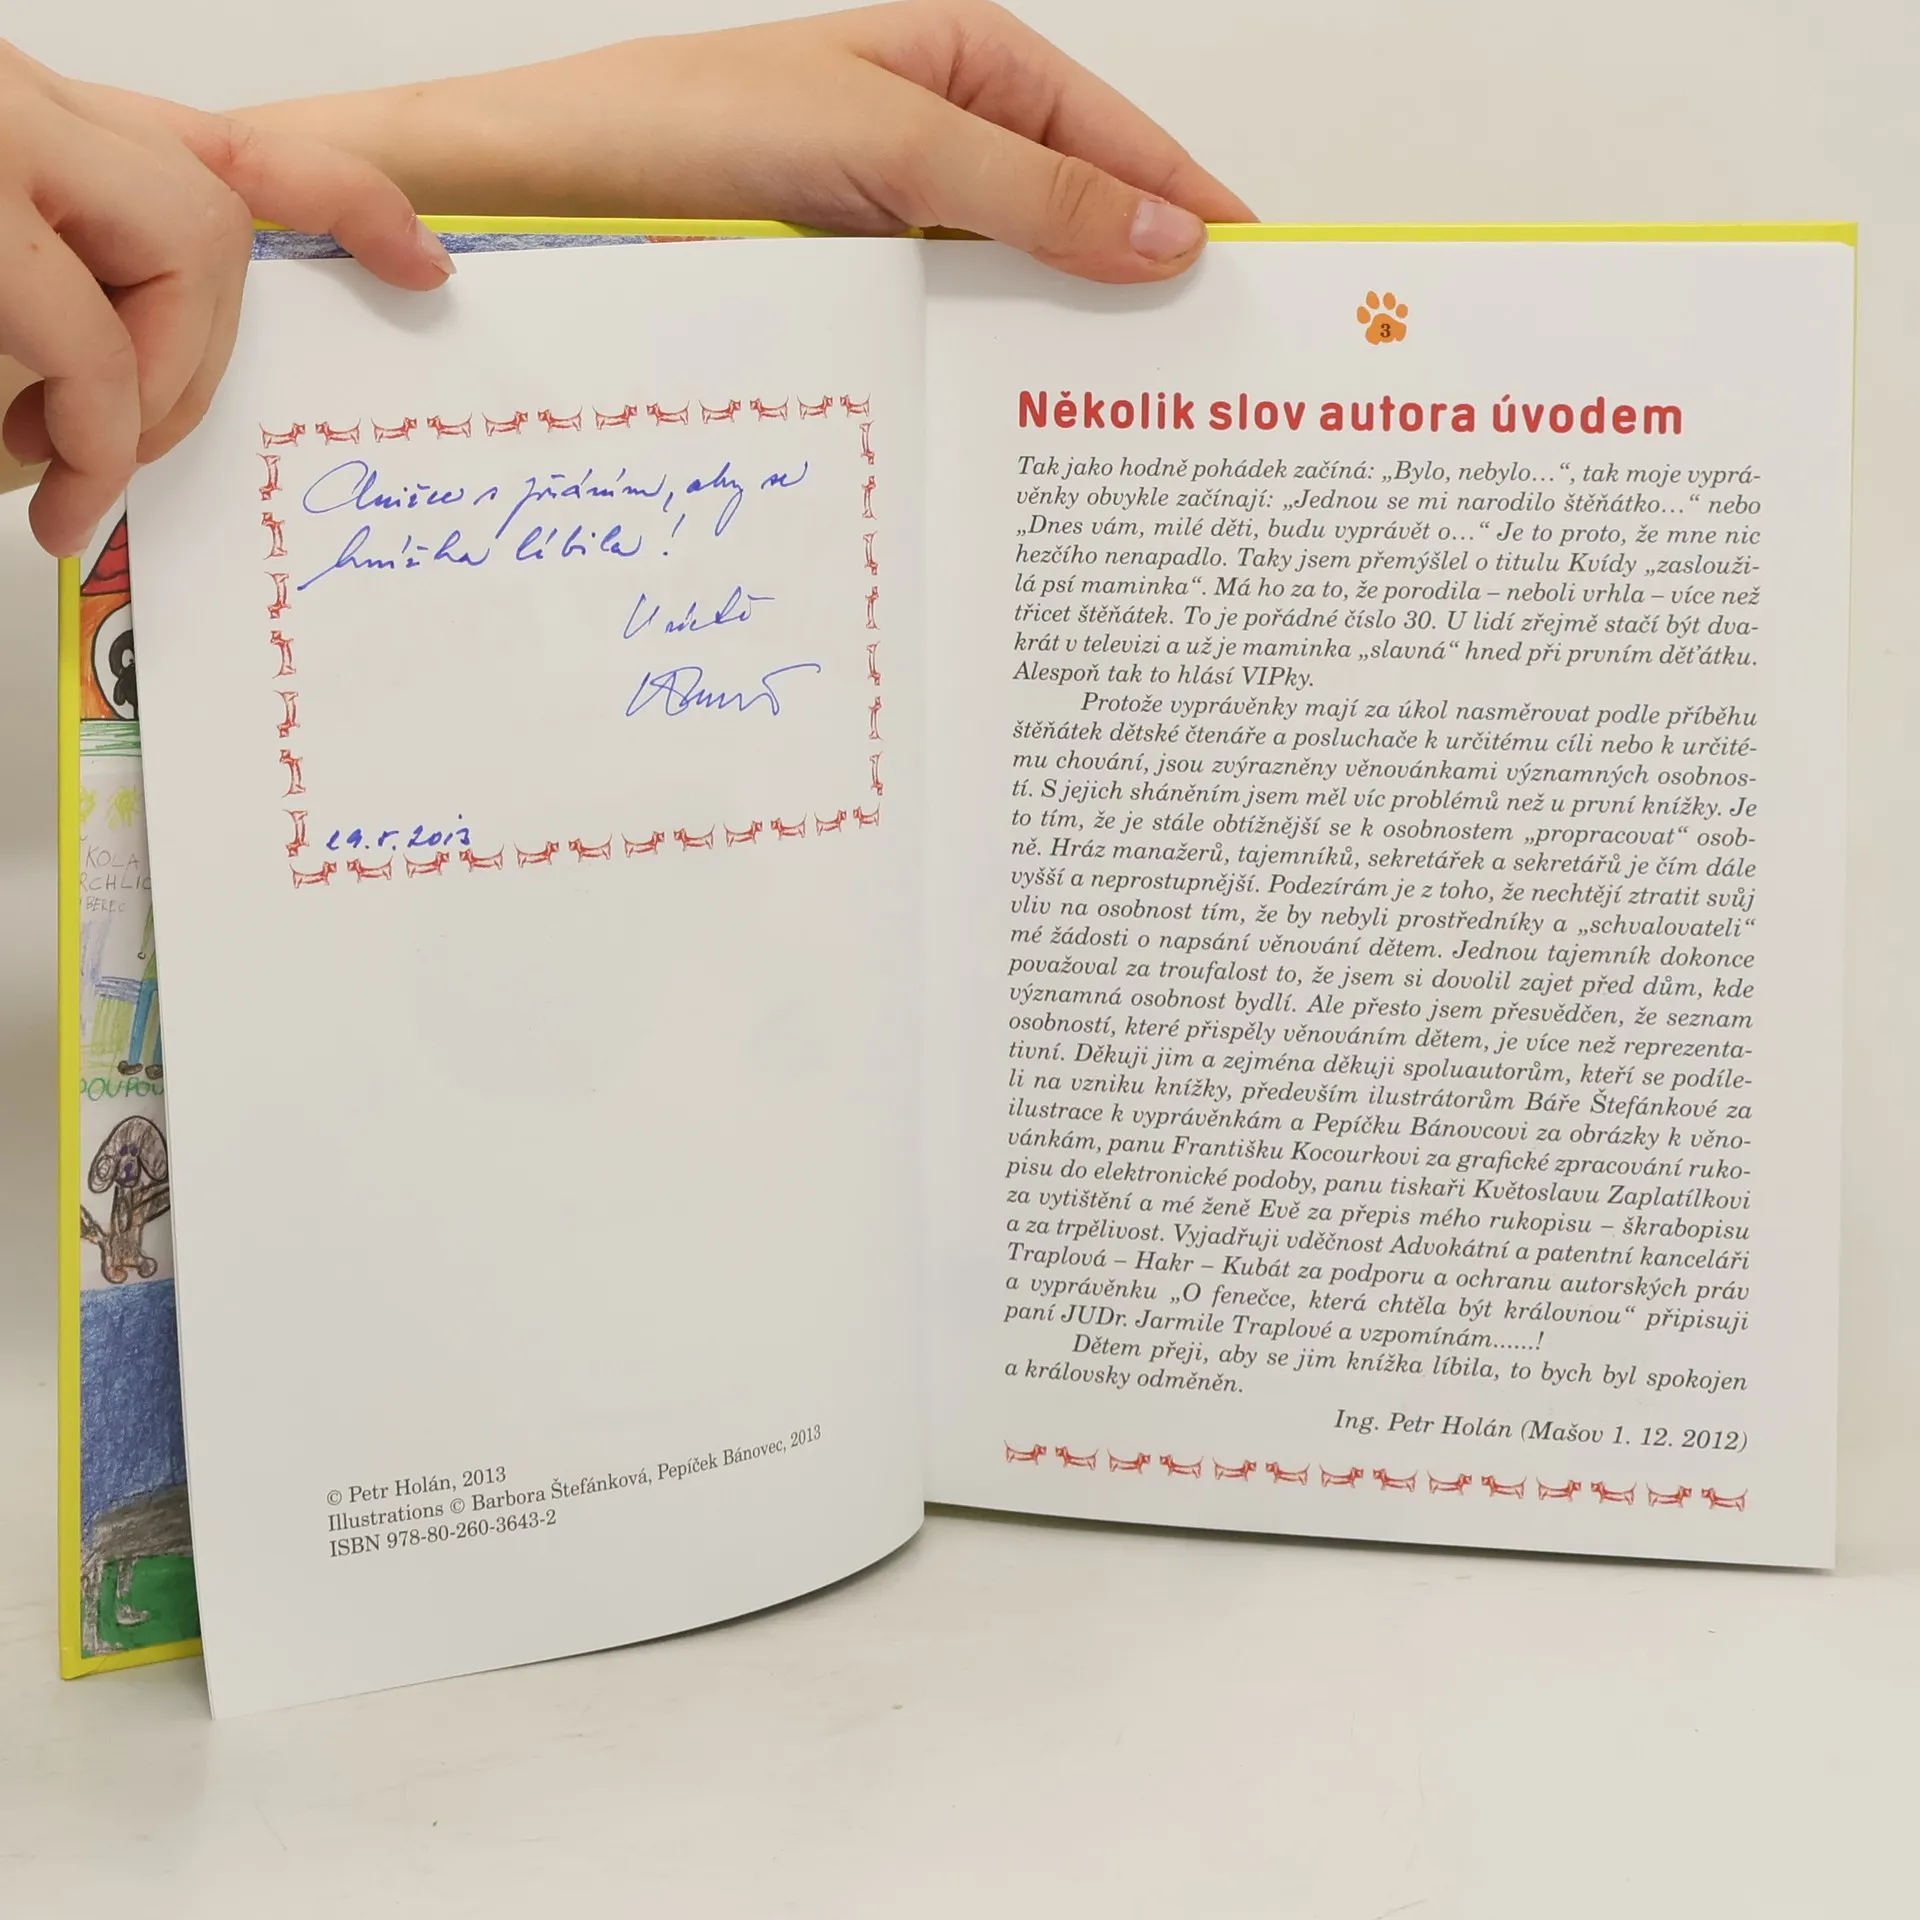 s přáním, aby se
knížka líbila!
V úctě
2013
© Petr Holán, 2013
Illustrations © Barbora Štefánková, Pepíček Bánovec, 2013
ISBN 978-80-260-3643-2
KOLA
RCHLIC
BEREC
3
Několik slov autora úvodem
Tak jako hodně pohádek začíná: „Bylo, nebylo…“, tak moje vyprá-
věnky obvykle začínají: „Jednou se mi narodilo štěňátko…“ nebo
„Dnes vám, milé děti, budu vyprávět o…“ Je to proto, že mne nic
hezčího nenapadlo. Taky jsem přemýšlel o titulu Kvídy „zaslouži-
lá psí maminka“. Má ho za to, že porodila – neboli vrhla – více než
třicet štěňátek. To je pořádné číslo 30. U lidí zřejmě stačí být dva-
krát v televizi a už je maminka „slavná“ hned při prvním děťátku.
Alespoň tak to hlásí VIPky.
Protože vyprávěnky mají za úkol nasměrovat podle příběhu
štěňátek dětské čtenáře a posluchače k určitému cíli nebo k určité-
mu chování, jsou zvýrazněny věnovánkami významných osobnos-
tí. S jejich sháněním jsem měl víc problémů než u první knížky. Je
to tím, že je stále obtížnější se k osobnostem „propracovat“ osob-
ně. Hráz manažerů, tajemníků, sekretářek a sekretářů je čím dále
vyšší a neprostupnější. Podezírám je z toho, že nechtějí ztratit svůj
vliv na osobnost tím, že by nebyli prostředníky a „schvalovateli“
mé žádosti o napsání věnování dětem. Jednou tajemník dokonce
považoval za troufalost to, že jsem si dovolil zajet před dům, kde
významná osobnost bydlí. Ale přesto jsem přesvědčen, že seznam
osobností, které přispěly věnováním dětem, je více než reprezenta-
tivní. Děkuji jim a zejména děkuji spoluautorům, kteří se podíle-
li na vzniku knížky, především ilustrátorům Báře Štefánkové za
ilustrace k vyprávěnkám a Pepíčku Bánovcovi za obrázky k věno-
vánkám, panu Františku Kocourkovi za grafické zpracování ruko-
pisu do elektronické podoby, panu tiskaři Květoslavu Zaplatílkovi
za vytištění a mé ženě Evě za přepis mého rukopisu – škrabopisu
a za trpělivost. Vyjadřuji vděčnost Advokátní a patentní kanceláři
Traplová – Hakr – Kubát za podporu a ochranu autorských práv
a vyprávěnku „O fenečce, která chtěla být královnou“ připisuji
paní JUDr. Jarmile Traplové a vzpomínám......!
Dětem přeji, aby se jim knížka líbila, to bych byl spokojen
a královsky odměněn.
Ing. Petr Holán (Mašov 1. 12. 2012)